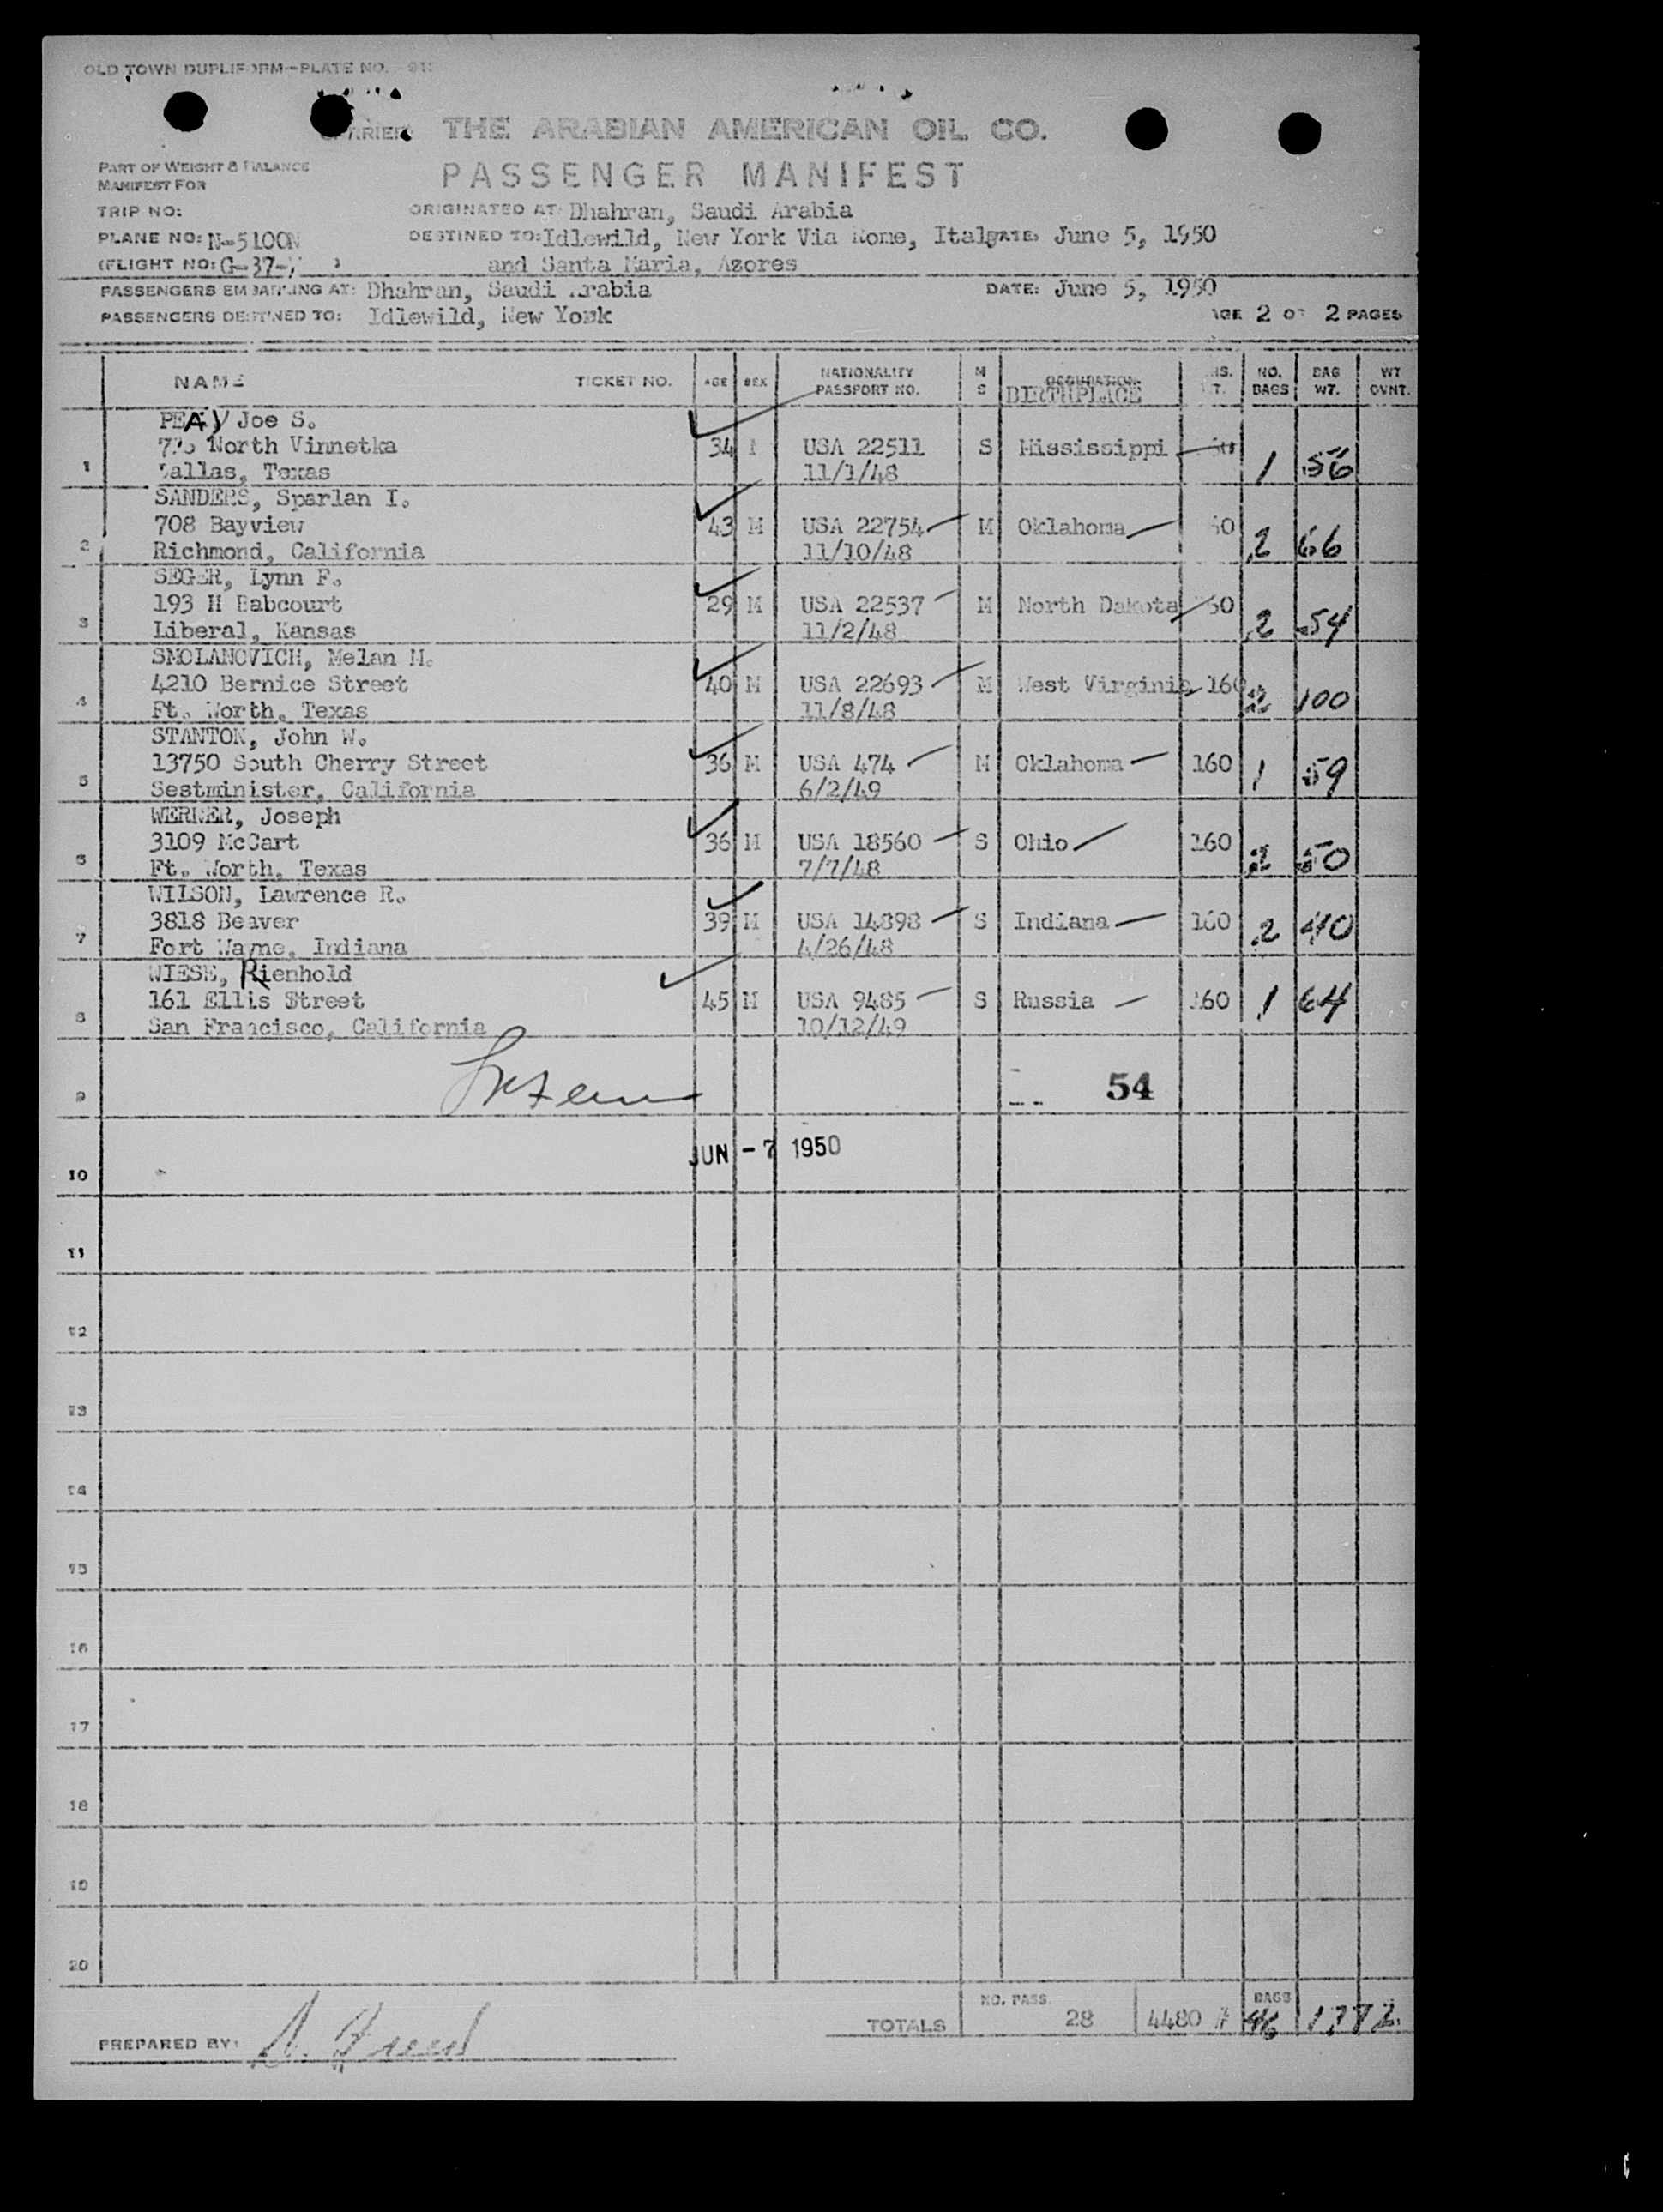 OLD TOWN DUPLIFORM-PLATE NO.
CARRIER THE ARABIAN AMERICAN OIL CO.
PART OF WEIGHT & BALANCE
MANIFEST FOR
PASSENGER MANIFEST
TRIP NO: ORIGINATED AT: Dhahran, Saudi Arabia
PLANE NO: N-5100N DESTINED TO: Idlewild, New York Via Rome, Italy DATE: June 5, 1950
(FLIGHT NO: G-37- ) and Santa Maria, Azores
PASSENGERS EMBARKING AT: Dhahran, Saudi Arabia DATE: June 5, 1950
PASSENGERS DESTINED TO: Idlewild, New York PAGE 2 OF 2 PAGES
NAME TICKET NO. AGE SEX NATIONALITY PASSPORT NO. M S OCCUPATION BIRTHPLACE NO. BAGS BAG WT. WT CVNT.
PEAY Joe S.
North Vinnetka 34 USA 22511 S Mississippi
1 Dallas, Texas 11/1/48 1 56
SANDERS, Sparlan I.
708 Bayview 43 M USA 22754 M Oklahoma 60
2 Richmond, California 11/10/48 2 66
SEGER, Lynn F.
193 H Babcourt 29 M USA 22537 M North Dakota 160
3 Liberal, Kansas 11/2/48 2 54
SMOLANOVICH, Melan M.
4210 Bernice Street 40 M USA 22693 M West Virginia 160
4 Ft. Worth, Texas 11/8/48 2 100
STANTON, John W.
13750 South Cherry Street 36 M USA 474 M Oklahoma 160
5 Sestminister, California 6/2/49 1 59
WERNER, Joseph
3109 McCart 36 M USA 18560 S Ohio 160
6 Ft. Worth, Texas 7/7/48 2 50
WILSON, Lawrence R.
3818 Beaver 39 M USA 14898 S Indiana 160
7 Fort Wayne, Indiana 4/26/48 2 40
WIESE, Rienhold
161 Ellis Street 45 M USA 9485 S Russia 160
8 San Francisco, California 10/12/49 1 64
9 54
JUN - 7 1950
10
11
12
13
14
15
16
17
18
19
20
NO. PASS. BAGS
TOTALS 28 4480 # 46
PREPARED BY: